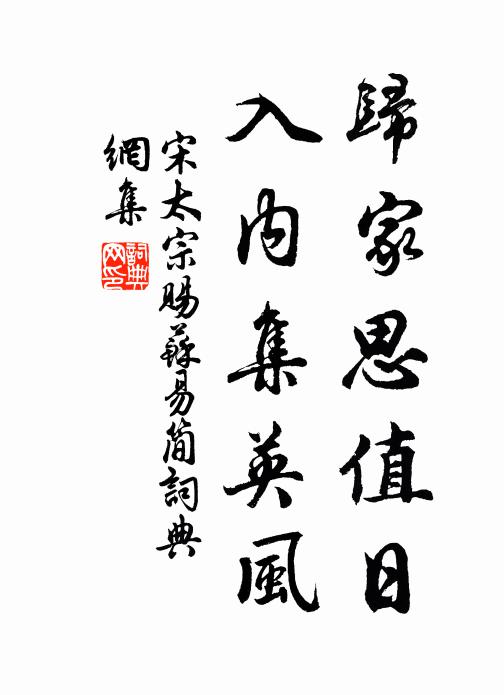 歸家思值日
入內集英風
宋太宗賜蘇易簡詞典
網集
詞典
网印